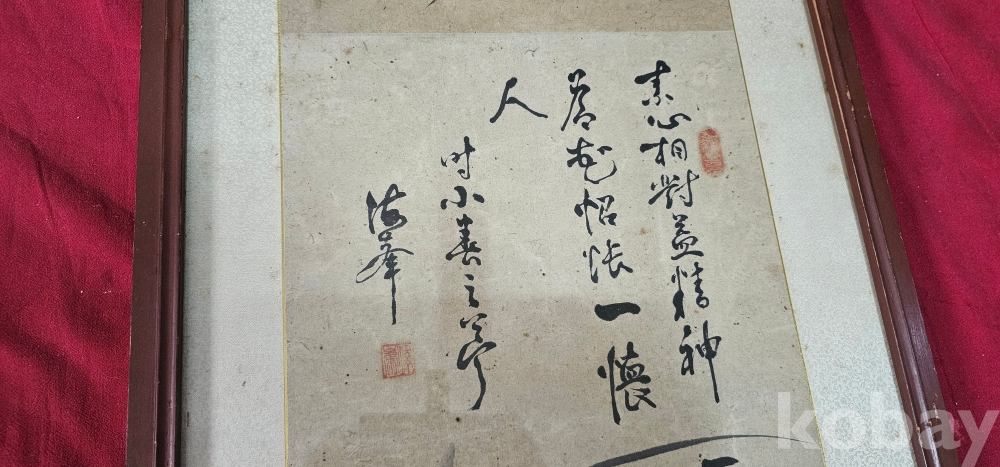 素心相對益精神
花怊悵一懷
人
时小春之節
海峯
kobay